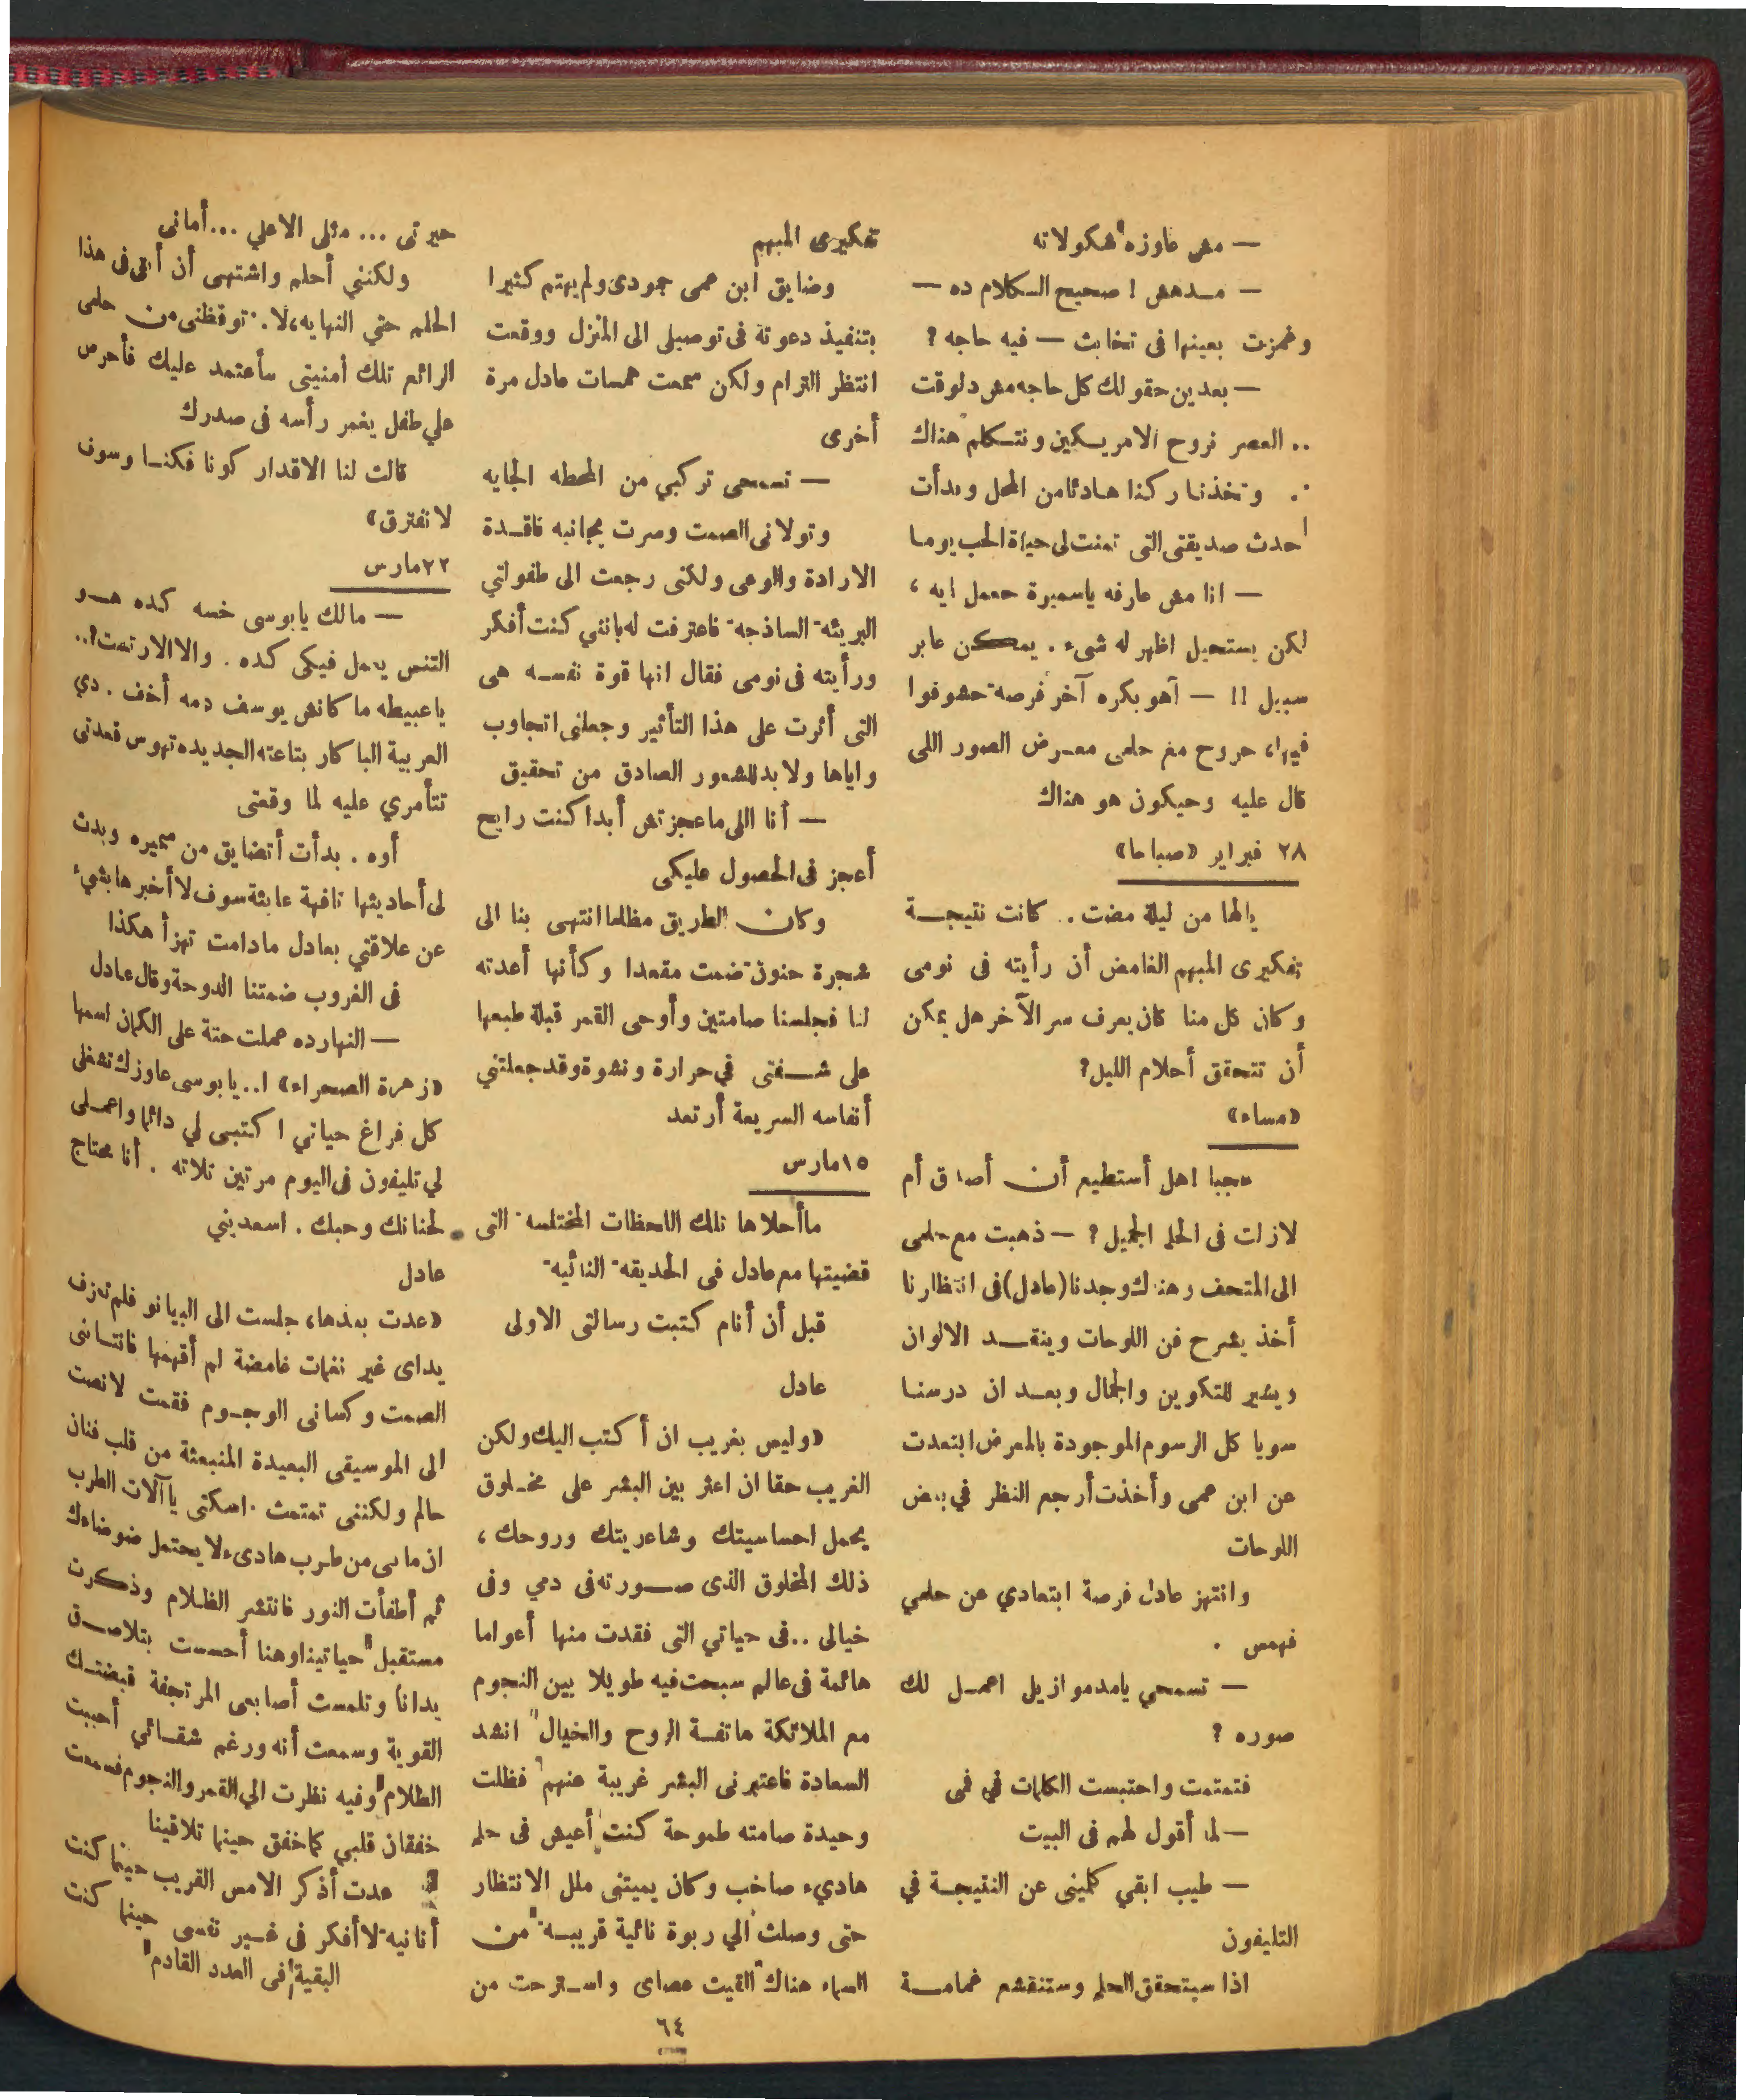 — مش عاوزه شكولاته
— مدهش ! صحيح الكلام ده —
وغمزت بعينها فى تخابث — فيه حاجه ؟
— بعدين حقولك كل حاجه مش دلوقت
.. العصر نروح الامريكين ونتكلم هناك
.. وتخذنا ركنا هادئا من المحل وبدأت
احدث صديقتى التى تمنت لى حياة الحب يوما
— انا مش عارفه ياسميرة حعمل ايه ،
لكن يستحيل اظهر له شىء . يمكن عابر
سبيل !! — آهو بكره آخر فرصه حشوفوا
فيها، حروح مع حلمى معرض الصور اللى
قال عليه وحيكون هو هناك
٢٨ فبراير «صباحا»
يالها من ليلة مضت .. كانت نتيجة
تفكيرى المبهم الغامض أن رأيته فى نومى
وكان كل منا كان يعرف سر الآخر هل يمكن
أن تتحقق أحلام الليل؟
«مساء»
عجبا ! هل أستطيع أن أصدق أم
لازلت فى الحلم الجميل ؟ — ذهبت مع حلمى
الى المتحف وهناك وجدنا (عادل) فى انتظارنا
أخذ يشرح فن اللوحات وينقد الالوان
ويشير للتكوين والجمال وبعد ان درسنا
سويا كل الرسوم الموجودة بالمعرض ابتعدت
عن ابن عمى وأخذت أرجع النظر في بعض
اللوحات
وانتهز عادل فرصة ابتعادي عن حلمي
فهمس .
— تسمحي يامدموازيل اعمل لك
صوره ؟
فتمتمت واحتبست الكلمات في فمى
— لما أقول لهم فى البيت
— طيب ابقي كلمينى عن النتيجة في
التليفون
اذا سيتحقق الحلم وستنقشع غمامة
تفكيرى المبهم
وضايق ابن عمى جمودى ولم يهتم كثيرا
بتنفيذ دعوتة فى توصيلى الى المنزل ووقفت
انتظر الترام ولكن سمعت همسات عادل مرة
أخرى
— تسمحى تركبي من المحطه الجايه
وتولانى الصمت وصرت بجانبه فاقدة
الارادة والوعى ولكنى رجعت الى طفولتي
البريئه الساذجه فاعترفت له بانني كنت أفكر
ورأيته فى نومى فقال انها قوة نفسه هى
التى أثرت على هذا التأثير وجعلنى اتجاوب
واياها ولا بد للشعور الصادق من تحقيق
— أنا اللى ماعجزتش أبدا كنت رايح
أعجز فى الحصول عليكى
وكان الطريق مظلما انتهى بنا الى
شجرة حنون ضمت مقعدا وكأنها أعدته
لنا فجلسنا صامتين وأوحى القمر قبلة طبعها
على شفتى في حرارة ونشوة وقد جعلتني
أنفاسه السريعة أرتعد
١٥ مارس
ماأحلاها تلك اللحظات المختلسه التى
قضيتها مع عادل فى الحديقه النائيه
قبل أن أنام كتبت رسالتى الاولى
عادل
«وليس بغريب ان أكتب اليك ولكن
الغريب حقا ان اعثر بين البشر على مخلوق
يحمل احساسيتك وشاعريتك وروحك ،
ذلك المخلوق الذى صورته فى دمي وفى
خيالى .. فى حياتي التى فقدت منها أعواما
هائمة فى عالم سبحت فيه طويلا بين النجوم
مع الملائكة هاتفة الروح والخيال انشد
السعادة فاعتبرنى البشر غريبة عنهم فظلت
وحيدة صامته طموحة كنت أعيش فى حلم
هاديء صاخب وكان يميتنى ملل الانتظار
حتى وصلت الي ربوة نائية قريبه من
السماء هناك القيت عصاى واسترحت من
حيرتى ... مثلى الاعلي ... أمانى
ولكنني أحلم واشتهى أن أبقى فى هذا
الحلم حتي النهايه، لا . توقظنى من حلمى
الرائع تلك أمنيتى سأعتمد عليك فأحرص
علي طفل يغمر رأسه فى صدرك
قالت لنا الاقدار كونا فكنا وسوف
لانفترق»
٢٢ مارس
— مالك يابوسى خسه كده هو
التنس يعمل فيكى كده . والا الارتمت؟..
ياعبيطه ماكانش يوسف دمه أخف . دي
العربية الباكار بتاعته الجديده تهوس قعدتى
تتأمري عليه لما وقعتى
أوه . بدأت أتضايق من سميره وبدت
لى أحاديثها تافهة عابثة سوف لا أخبرها بشيء
عن علاقتي بعادل مادامت تهزأ هكذا
فى الغروب ضمتنا الدوحة وقال عادل
— النهارده عملت حتة على الكمان اسمها
«زهرة الصحراء» ا.. يابوسى عاوزك تشغلى
كل فراغ حياتي اكتبى لي دائما واعملى
لي تليفون فى اليوم مرتين تلاته . أنا محتاج
لحنانك وحبك . اسعديني
عادل
«عدت بعدها، جلست الى البيانو فلم تعزف
يداى غير نغمات غامضة لم أفهمها فانتابنى
الصمت وكسانى الوجوم فقمت لانصت
الى الموسيقى البعيدة المنبعثة من قلب فنان
حالم ولكننى تمتمت . اسكتى ياآلات الطرب
ان مابى من طرب هادىء لا يحتمل ضوضاءك
ثم أطفأت النور فانتشر الظلام وذكرت
مستقبل حياتينا وهنا أحسست بتلاصق
يدانا وتلمست أصابعى المرتجفة قبضتك
القوية وسمعت أنه ورغم شقائي أحببت
الظلام وفيه نظرت الي القمر والنجوم فسمعت
خفقان قلبي كما خفق حينما تلاقينا
عدت أذكر الامس القريب حينما كنت
أنانيه لا أفكر فى غير نفسى حينما كنت
البقية فى العدد القادم
٦٤